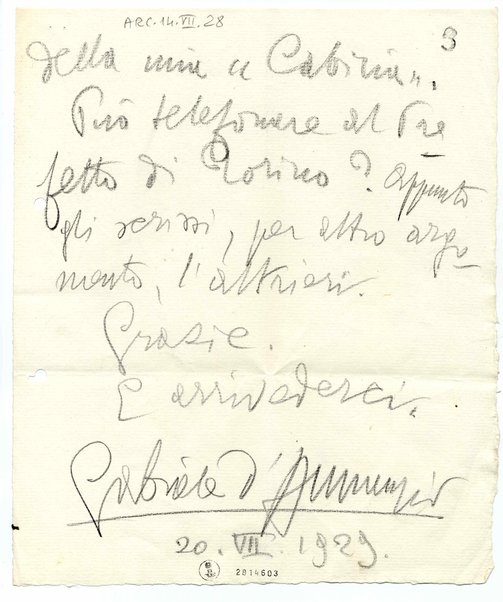 ARC.14.VII.28
3
della mia « Cabiria ».
Può telefonare al Pre
fetto di Torino? Appunto
gli scrissi, per altro argo-
mento, l'altrieri.
Grazie.
E arrivederci.
Gabriele d'Annunzio
20. VII. 1929.
2814603